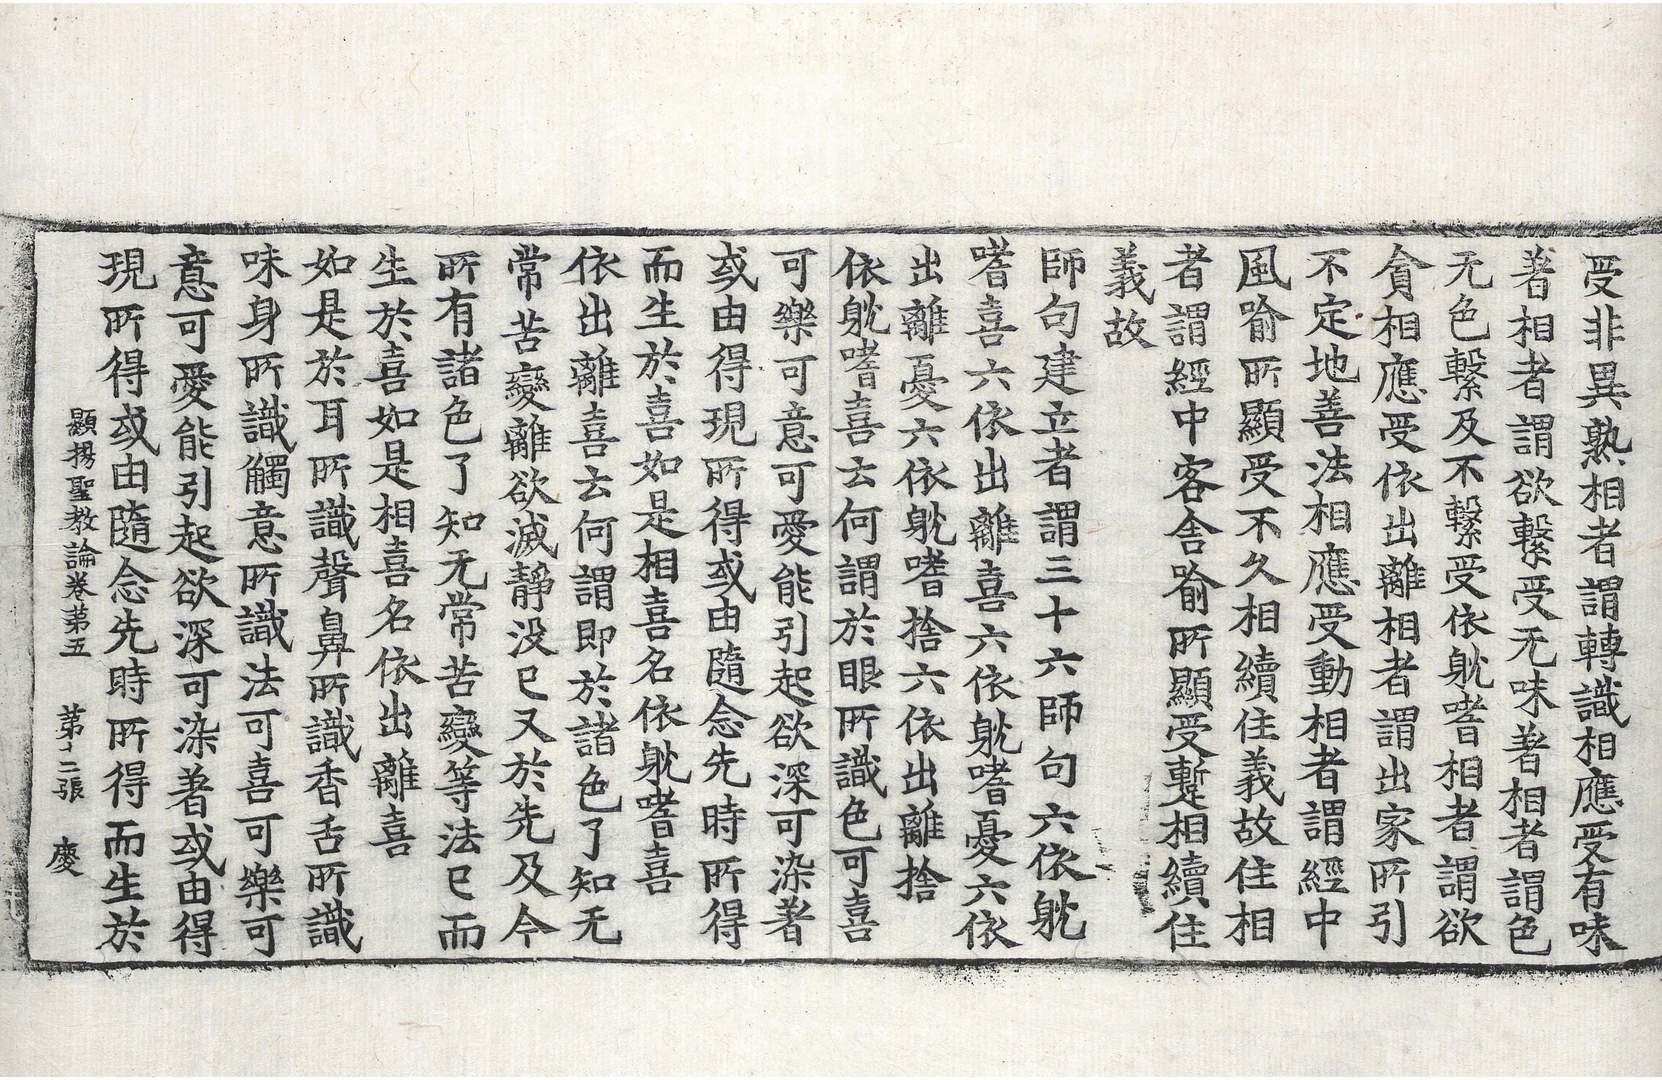 受非異熟相者謂轉識相應受有味
著相者謂欲繫受无味著相者謂色
无色繫及不繫受依躭嗜相者謂欲
貪相應受依出離相者謂出家所引
不定地善法相應受動相者謂經中
風喻所顯受不久相續住義故住相
者謂經中客舍喻所顯受蹔相續住
義故
師句建立者謂三十六師句六依躭
嗜喜六依出離喜六依躭嗜憂六依
出離憂六依躭嗜捨六依出離捨
依躭嗜喜云何謂於眼所識色可喜
可樂可意可愛能引起欲深可染著
或由得現所得或由隨念先時所得
而生於喜如是相喜名依躭嗜喜
依出離喜云何謂即於諸色了知无
常苦變離欲滅靜没已又於先及今
所有諸色了知无常苦變等法已而
生於喜如是相喜名依出離喜
如是於耳所識聲鼻所識香舌所識
味身所識觸意所識法可喜可樂可
意可愛能引起欲深可染著或由得
現所得或由隨念先時所得而生於
顯揚聖教論卷第五 第十二張 慶